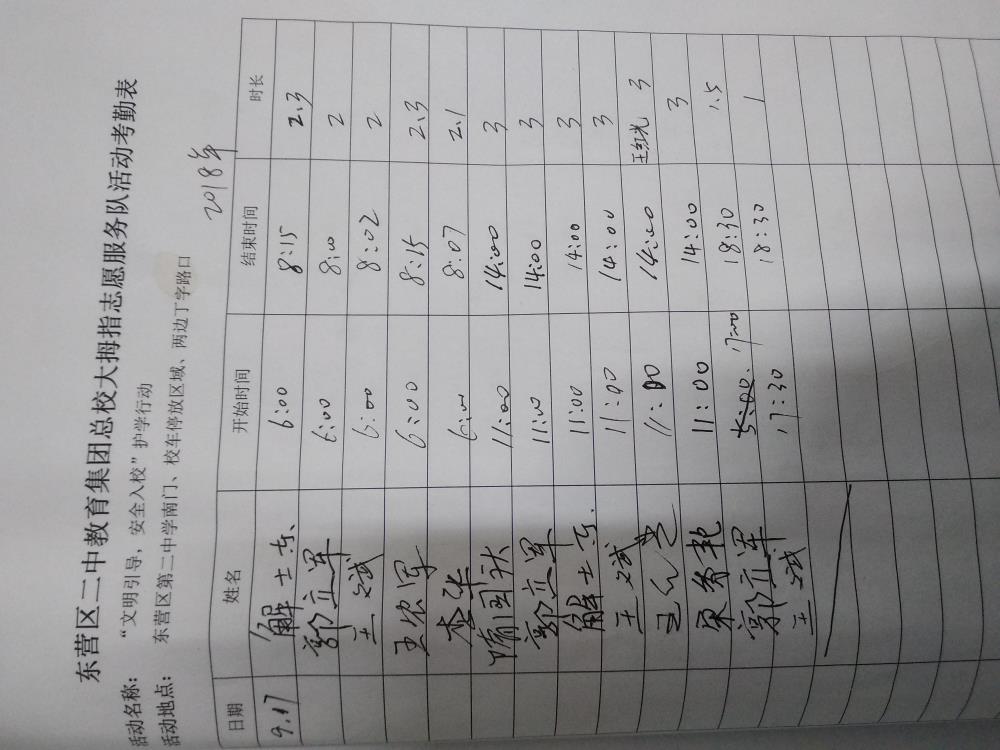 东营区二中教育集团总校大拇指志愿服务队活动考勤表
活动名称： “文明引导，安全入校”护学行动
活动地点： 东营区第二中学南门、校车停放区域、两边丁字路口
2018年
日期 姓名 开始时间 结束时间 时长
9.17 解士东 6:00 8:15 2.3
郭立军 6:00 8:00 2
王斌 6:00 8:02 2
王宏军 6:00 8:15 2.3
李华 6:00 8:07 2.1
隋国秋 11:00 14:00 3
郭立军 11:00 14:00 3
解士东 11:00 14:00 3
王斌 11:00 14:00 3
王红光 11:00 14:00 王红光 3
11:00 14:00 3
郭立军 5:00. 17:00 18:30 1.5
王斌 17:30 18:30 1